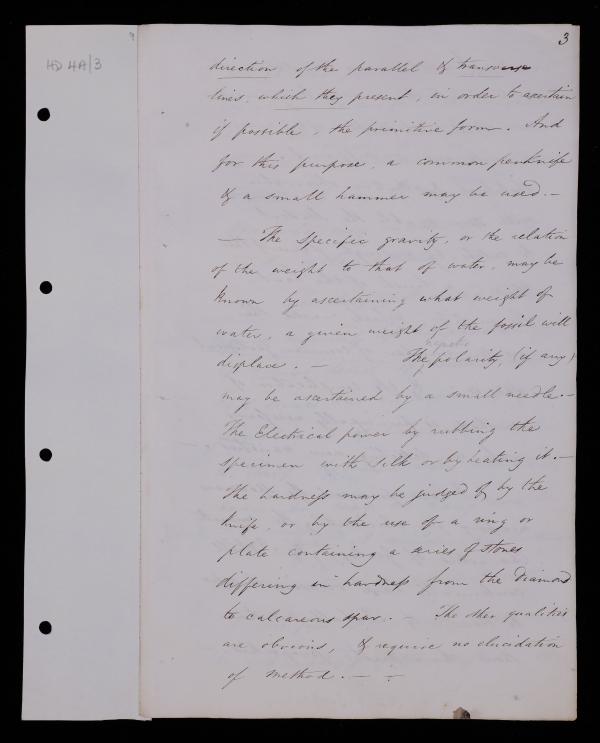 HD 4A/3
9
3
direction of the parallel & transverse
lines, which they present, in order to ascertain
if possible, the primitive form. And
for this purpose, a common penknife
& a small hammer may be used. —
— The Specific gravity, or the relation
of the weight to that of water, may be
known by ascertaining what weight of
water, a given weight of the fossil will
displace. — The polarity, (if any)
may be ascertained by a small needle. —
The Electrical power by rubbing the
specimen with silk or by heating it. —
The hardness may be judged of by the
knife, or by the use of a ring or
plate containing a series of stones
differing in hardness from the Diamond
to calcareous spar. — The other qualities
are obvious, & require no elucidation
of method. — ÷